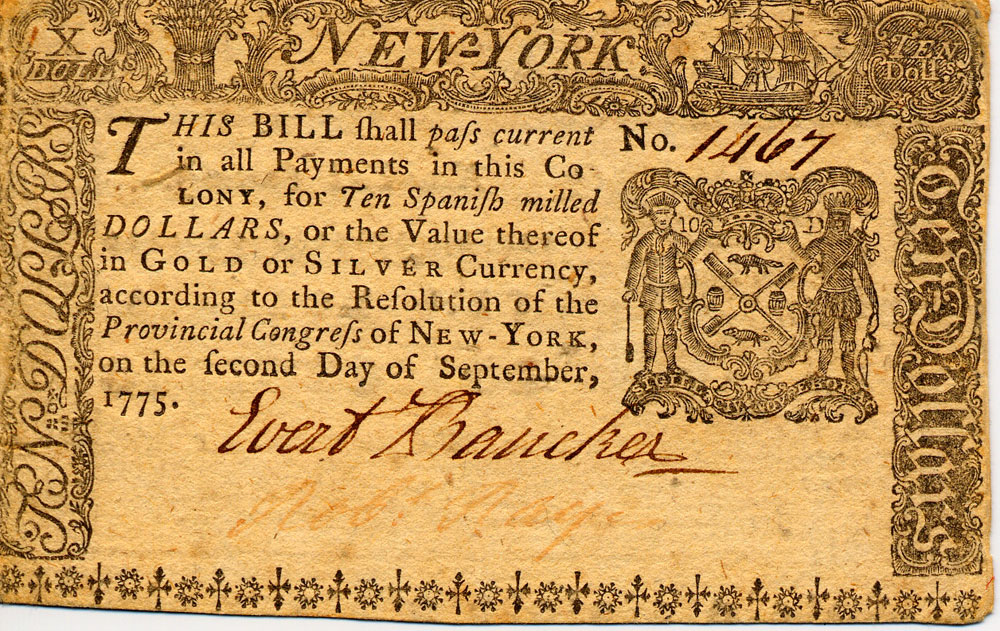 X
DOLL
NEW-YORK.
TEN
Doll.s
THIS BILL ſhall paſs current
in all Payments in this Co-
LONY, for Ten Spaniſh milled
DOLLARS, or the Value thereof
in GOLD or SILVER Currency,
according to the Reſolution of the
Provincial Congreſs of NEW-YORK,
on the ſecond Day of September,
1775.
No. 1467
10 D
SIGILL
EBOR
TEN DOLLARS
Ten Dollars
Evert Bancker
Robt. Ray